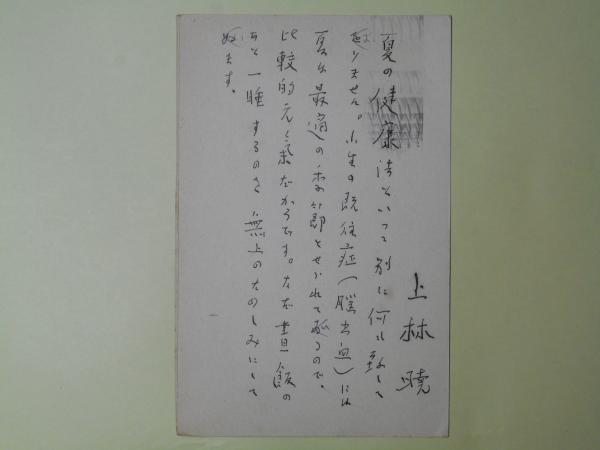 上林暁
夏の健康法といって別に何も致して
居りません。小生の既往症（脳出血）には
夏は最適の季節とせられて居るので、
比較的元気だからです。ただ昼飯の
あと一睡するのを無上のたのしみにして
居ます。